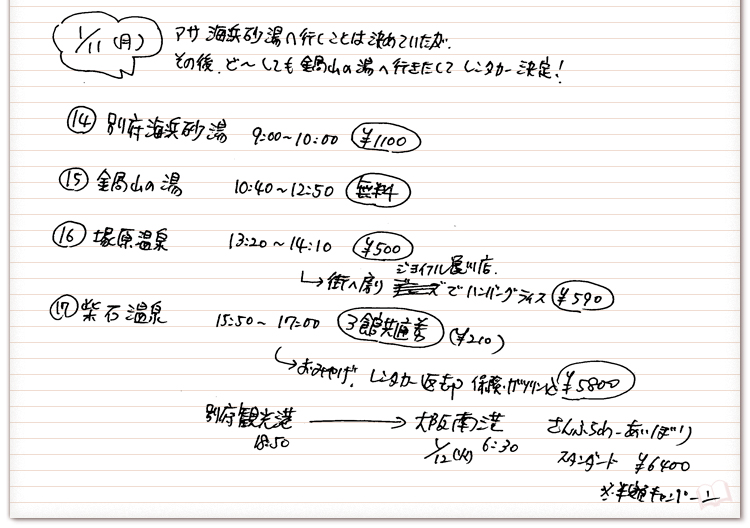 1/11(月)
アサ 海浜砂湯へ行くことは決めていたが、
その後、ど〜しても鍋山の湯へ行きたくて レンタカー決定!
⑭ 別府海浜砂湯 9:00〜10:00 ¥1100
⑮ 鍋山の湯 10:40〜12:50 無料
⑯ 塚原温泉 13:20〜14:10 ¥500
ジョイフル 店.
↳街へ戻り でハンバーグライス ¥590
⑰ 柴石温泉 15:50〜17:00 3館共通券 (¥210)
↳おみやげ、レンタカー返却 保険・ガソリン込 ¥5800
別府観光港 → 大阪南港 さんふらわーあいぼり
18:50 1/12(火) 6:30
スタンダード ¥6400
※半額キャンペーン